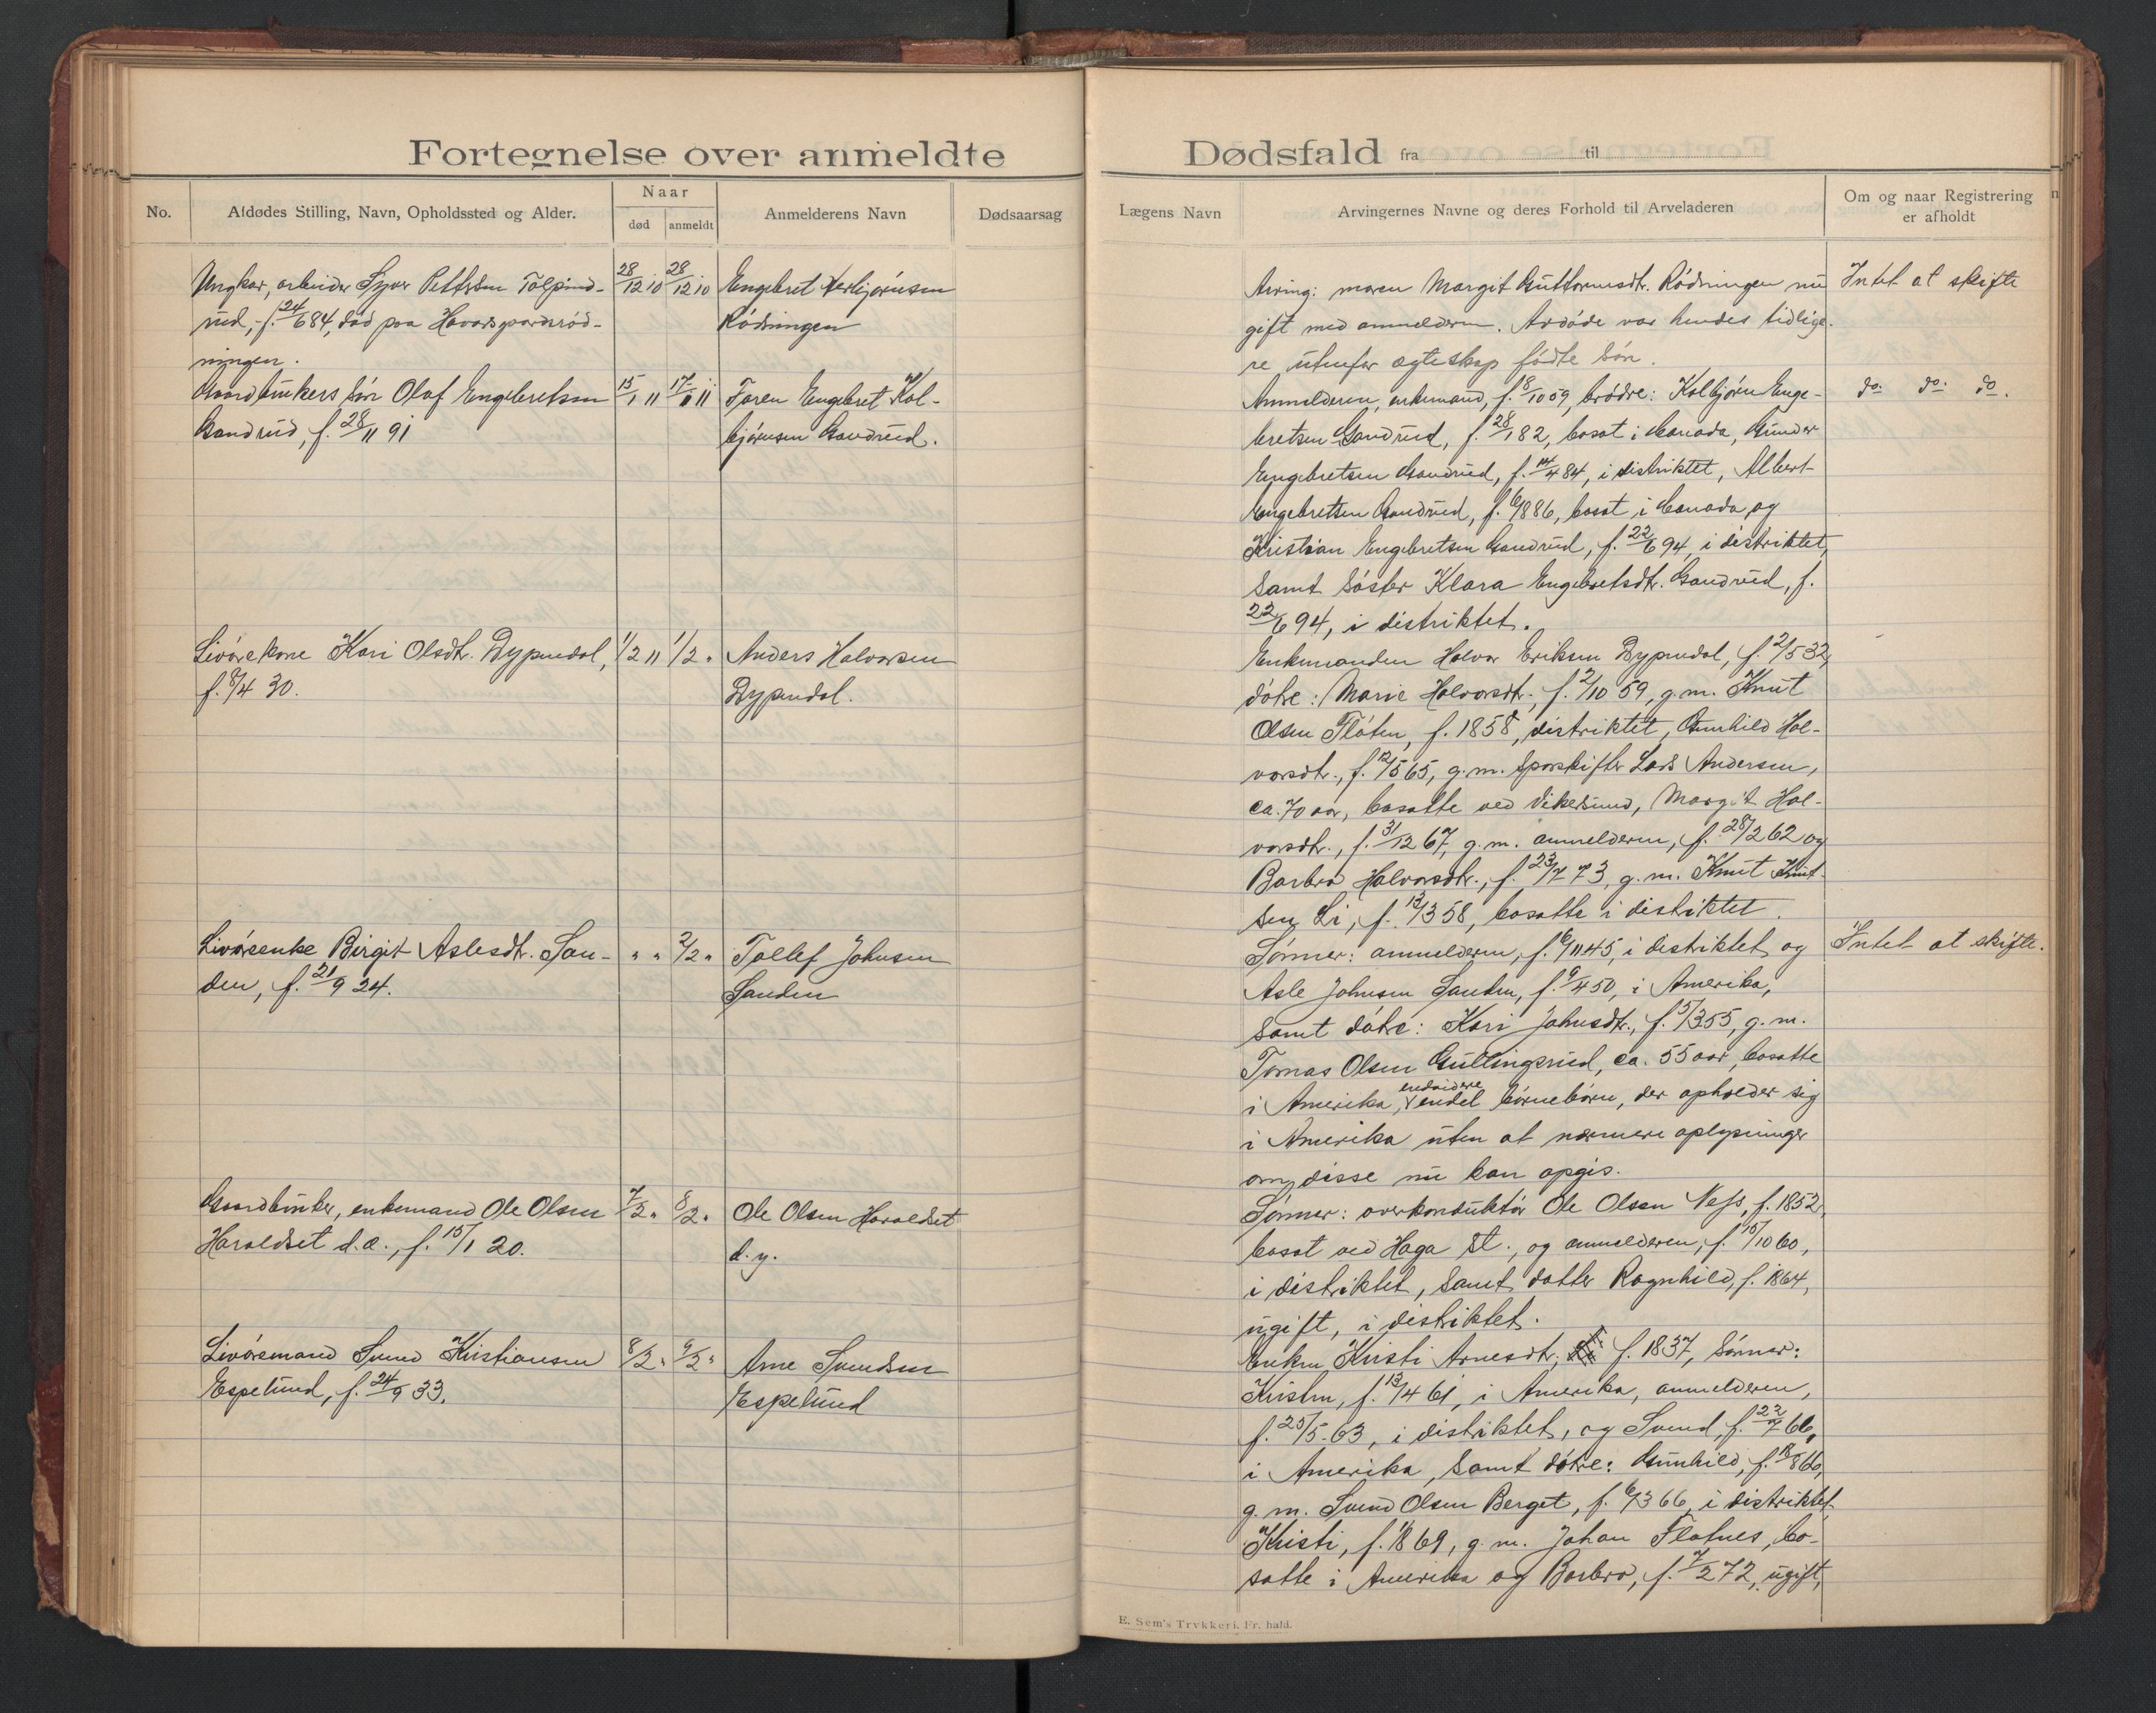 Fortegnelse over anmeldte
No.
Afdødes Stilling, Navn, Opholdssted og Alder.
Naar
død
anmeldt
Anmelderens Navn
Dødsaarsag
Ungkar, arbeider Syver Pettersen Tolpind-
rud, f. 24/6 84, død paa Havardsgardsrød-
ningen.
28/12 10
28/12 10
Engebret Herbjørnsen
Rødningen
Gaardbrukers søn Olaf Engebretsen
Gandrud, f. 28/11 91
15/1 11
17/1 11
Faren Engebret Kol-
bjørnsen Gandrud.
Livørekone Kari Olsdtr. Dypendal,
f. 8/4 30.
1/2 11
1/2 "
Anders Halvorsen
Dypendal.
Livørsenke Birgit Aslesdtr. San-
den, f. 21/9 24.
" "
2/2 "
Tollef Johnsen
Sanden
Gaardbruker, enkemand Ole Olsen
Haraldset d.æ., f. 15/1 20.
7/2 "
8/2 "
Ole Olsen Haraldset
d.y.
Livørsmand Svend Kristiansen
Espelund, f. 24/9 33.
8/2 "
9/2 "
Arne Svendsen
Espelund
Dødsfald fra til
Lægens Navn
Arvingernes Navne og deres Forhold til Arveladeren
Om og naar Registrering
er afholdt
Arving: moren Margit Guttormsdtr. Rødningen nu
gift med anmelderen. Avdøde var hendes tidlige-
re utenfor egteskap fødte søn.
Intet at skifte
Anmelderen, enkemand, f. 8/10 59, brødre: Kolbjørn Enge-
bretsen Gandrud, f. 28/1 82, bosat i Canada, Gunder
Engebretsen Gandrud, f. 14/4 84, i distriktet, Albert
Engebretsen Gandrud, f. 6/1 886, bosat i Canada og
Kristian Engebretsen Gandrud, f. 22/6 94, i distriktet,
samt søster Klara Engebretsdtr. Gandrud, f.
22/6 94, i distriktet.
do. do. do.
Enkemanden Halvor Eriksen Dypendal, f. 2/5 32,
døtre: Marie Halvorsdtr., f. 2/10 59, g.m. Knut
Olsen Fløten, f. 1858, distriktet, Gunhild Hal-
vorsdtr., f. 12/5 65, g.m. sporskifter Lars Andersen,
ca. 70 aar, bosatte ved Vikersund, Margit Hal-
vorsdtr., f. 31/12 67, g.m. anmelderen, f. 28/2 62 og
Barbra Halvorsdtr., f. 23/7 73, g.m. Knut Knut-
sen Li, f. 12/3 58, bosatte i distriktet.
Sønner: anmelderen, f. 6/11 45, i distriktet og
Asle Johnsen Sanden, f. 9/4 50, i Amerika,
samt døtre: Kari Johnsdtr., f. 5/3 55, g.m.
Tomas Olsen Gullingsrud, ca. 55 aar, bosatte
i Amerika, endvidere endel børnebørn, der opholder sig
i Amerika uten at nærmere oplysninger
om disse nu kan opgis.
Intet at skifte.
Sønner: overkonduktør Ole Olsen Næss, f. 1852,
bosat ved Haga st., og anmelderen, f. 15/10 60,
i distriktet, samt datter Ragnhild, f. 1864,
ugift, i distriktet.
Enken Kristi Arnesdtr., f. 1837, sønner:
Kristen, f. 13/4 61, i Amerika, anmelderen,
f. 25/5 63, i distriktet, og Svend, f. 22/7 66,
i Amerika, samt døtre: Gunhild, f. 18/8 60,
g.m. Svend Olsen Berget, f. 6/3 66, i distriktet,
Kristi, f. 1869, g.m. Johan Flatnes, bo-
satte i Amerika og Barbro, f. 7/2 72, ugift,
E. Sem's Trykkeri. Fr. hald.